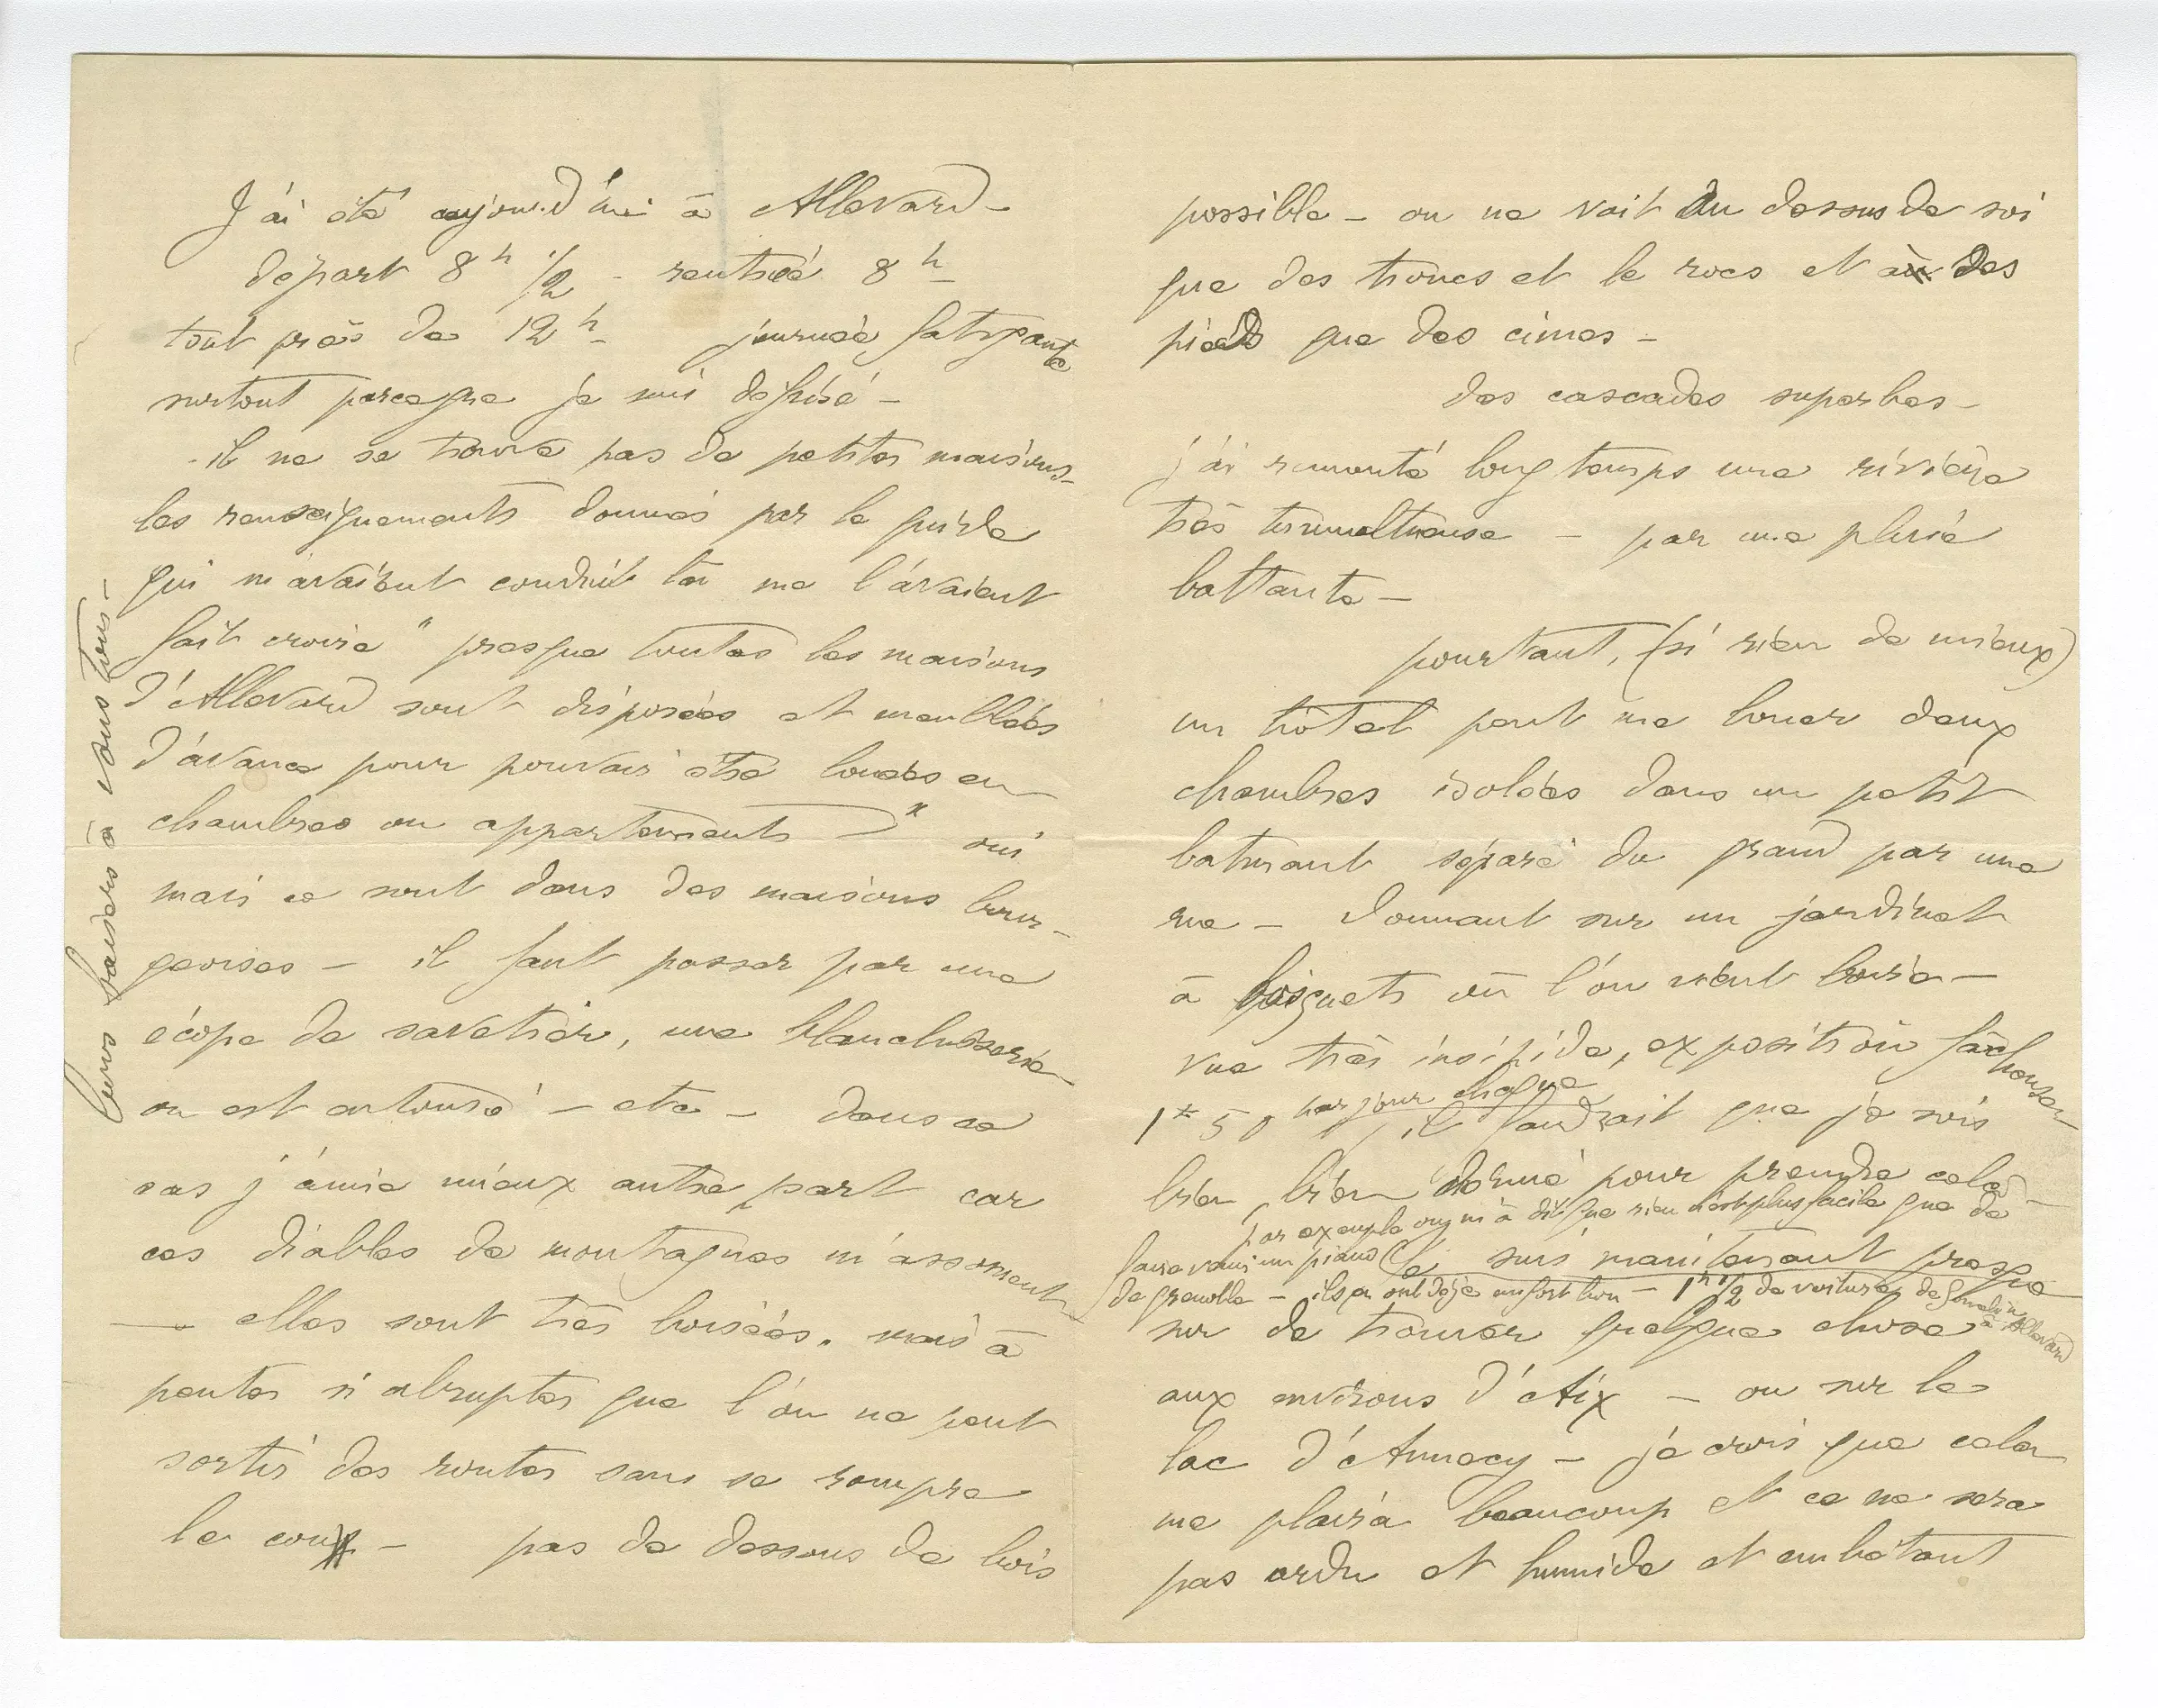 J'ai été aujourd'hui à Allevard –
départ 8h 1/2 – rentrée 8h –
tout près de 12h – journée fatigante
surtout parceque je suis défrisé –
– il ne se trouve pas de petites maisons –
les renseignements donnés par le guide
qui m'avaient conduit là me l'avaient
fait croire " presque toutes les maisons
d'Allevard sont disposées et meublées
d'avance pour pouvoir être louées en
chambres ou appartements " oui
mais ce sont dans des maisons bour-
geoises – il faut passer par une
écope de savetier, une blanchisserie
on est entouré – etc – dans ce
cas j'aime mieux autre part car
ces diables de montagnes m'assomment
– elles sont très boisées. mais à
pentes si abruptes que l'on ne peut
sortir des routes sans se rompre
le cou – pas de dessous de bois
bons baisers à vous tous –
possible – on ne voit au dessus de soi
que des troncs et le rocs et à des
pieds que des cimes –
des cascades superbes –
j'ai remonté longtemps une rivière
très tumultueuse – par une pluie
battante –
pourtant, (si rien de mieux)
un hôtel peut me louer deux
chambres isolées dans un petit
batiment séparé du grand par une
rue – donnant sur un jardinet
à bosquets où l'on vient boire –
vue très insipide, exposition fâcheuse –
1f 50 par jour chaque
il faudrait que je sois
bien, bien dénué pour prendre cela –
par exemple on m'a dit que rien n'est plus facile que de
faire venir un piano
de grenoble – ils en ont déjà un fort bon – 1h 1/2 de voiture de Goncelin
à Allevard
Je suis maintenant presque
sur de trouver quelque chose
aux environs d'Aix – ou sur le
lac d'Annecy – je crois que cela
me plaira beaucoup et ce ne sera
pas ardu et humide et embêtant